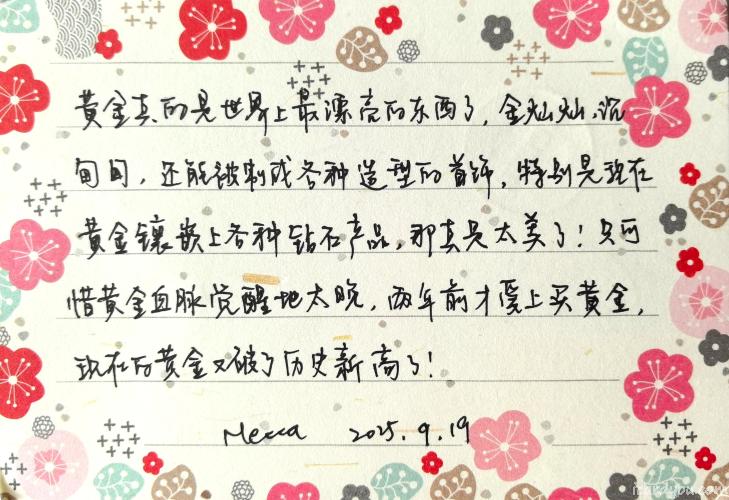 黄金真的是世界上最漂亮的东西了，金灿灿、沉
甸甸，还能被制成各种造型的首饰，特别是现在
黄金镶嵌上各种钻石产品，那真是太美了！只可
惜黄金血脉觉醒地太晚，两年前才爱上买黄金，
现在的黄金又破了历史新高了！
Mecca 2025.9.19